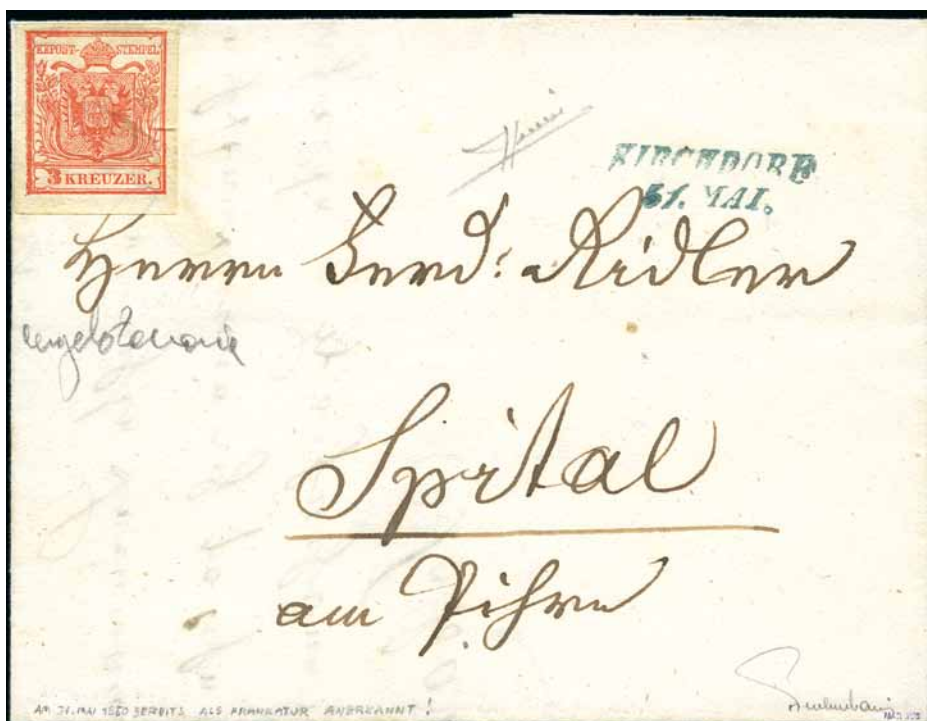 KKPOST-STEMPEL
3 KREUZER.
KIRCHDORF
31. MAI.
Herrn Ferd: Ridler
Spital
am Pihrn
AM 31. MAI 1850 BEREITS ALS FRANKATUR ANERKANNT!